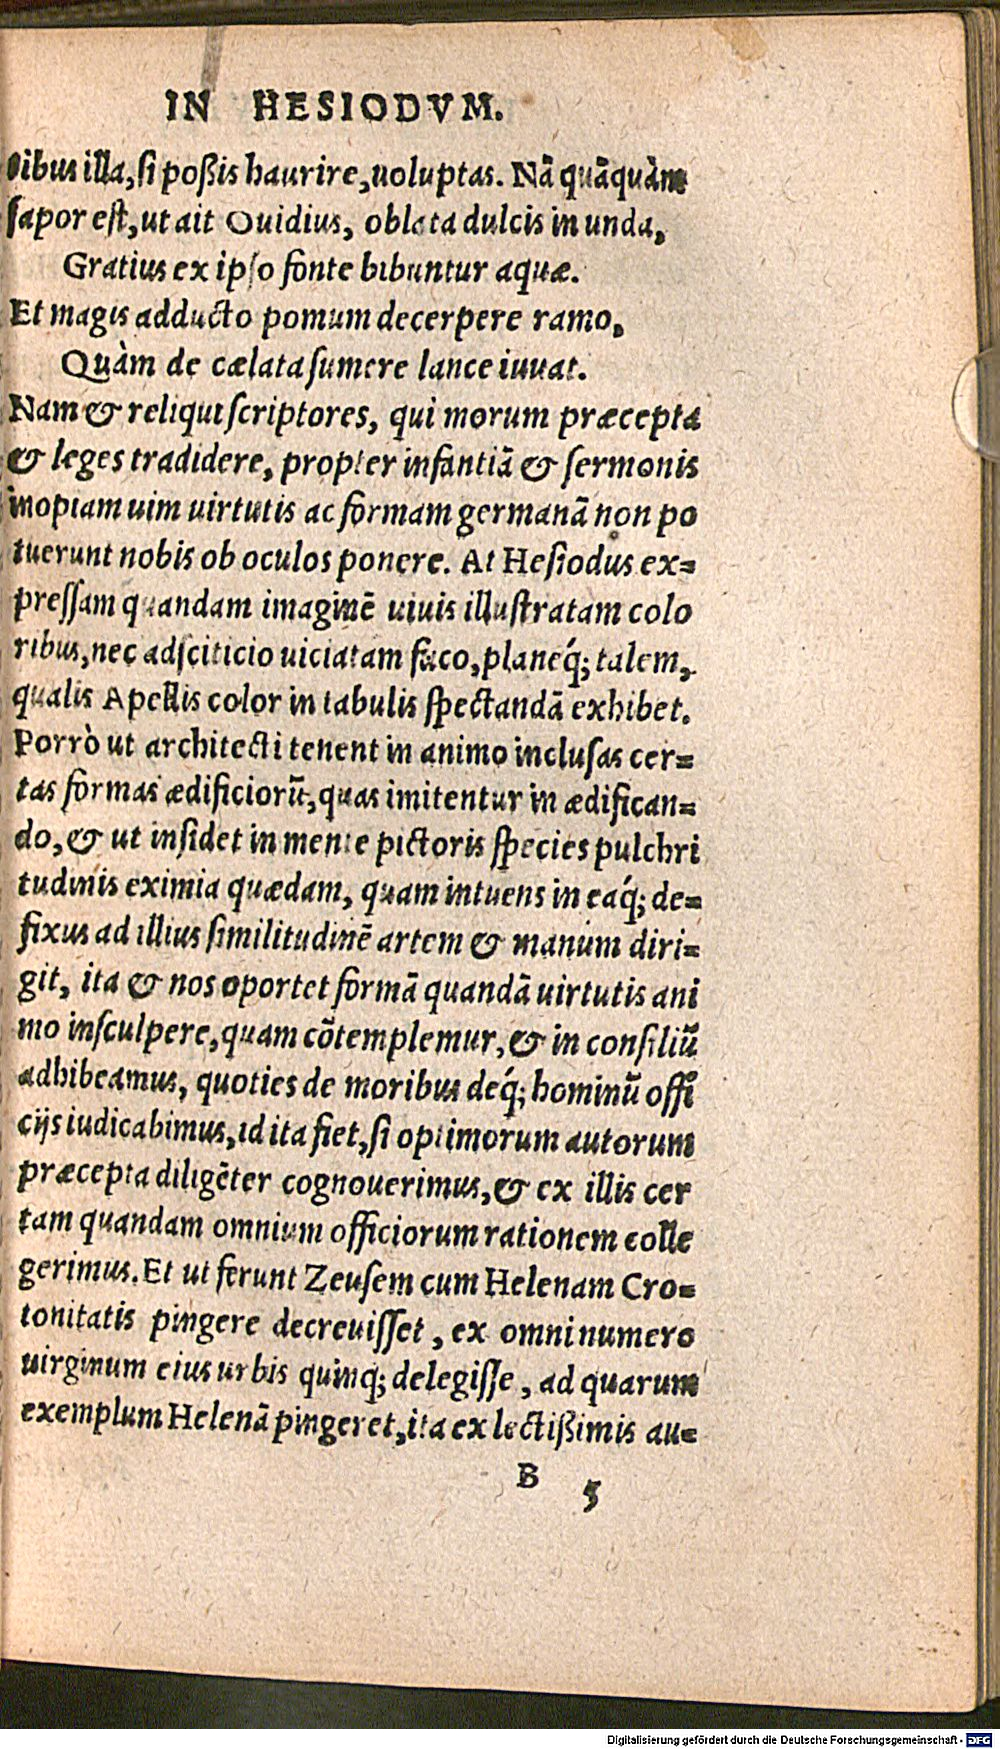 IN HESIODVM.
ibus illa, si poßis haurire, uoluptas. Nã quãquàm
sapor est, ut ait Ouidius, oblata dulcis in unda,
Gratius ex ipso fonte bibuntur aquæ.
Et magis adducto pomum decerpere ramo,
Quàm de cælata sumere lance iuuat.
Nam & reliqui scriptores, qui morum præcepta
& leges tradidere, propter infantiã & sermonis
inopiam uim uirtutis ac formam germanã non po
tuerunt nobis ob oculos ponere. At Hesiodus ex=
pressam quandam imaginẽ uiuis illustratam colo
ribus, nec adsciticio uiciatam fuco, planeq́; talem,
qualis Apellis color in tabulis spectandã exhibet.
Porrò ut architecti tenent in animo inclusas cer=
tas formas ædificiorũ, quas imitentur in ædifican=
do, & ut insidet in mente pictoris species pulchri
tudinis eximia quædam, quam intuens in eaq́; de=
fixus ad illius similitudinẽ artem & manum diri=
git, ita & nos oportet formã quandã uirtutis ani
mo insculpere, quam cõtemplemur, & in consiliũ
adhibeamus, quoties de moribus deq́; hominũ offi
cijs iudicabimus, id ita fiet, si optimorum autorum
præcepta diligẽter cognouerimus, & ex illis cer
tam quandam omnium officiorum rationem colle
gerimus. Et ut ferunt Zeusem cum Helenam Cro=
tonitatis pingere decreuisset, ex omni numero
uirginum eius urbis quinq; delegisse, ad quarum
exemplum Helenã pingeret, ita ex lectißimis au=
B 5
Digitalisierung gefördert durch die Deutsche Forschungsgemeinschaft - DFG